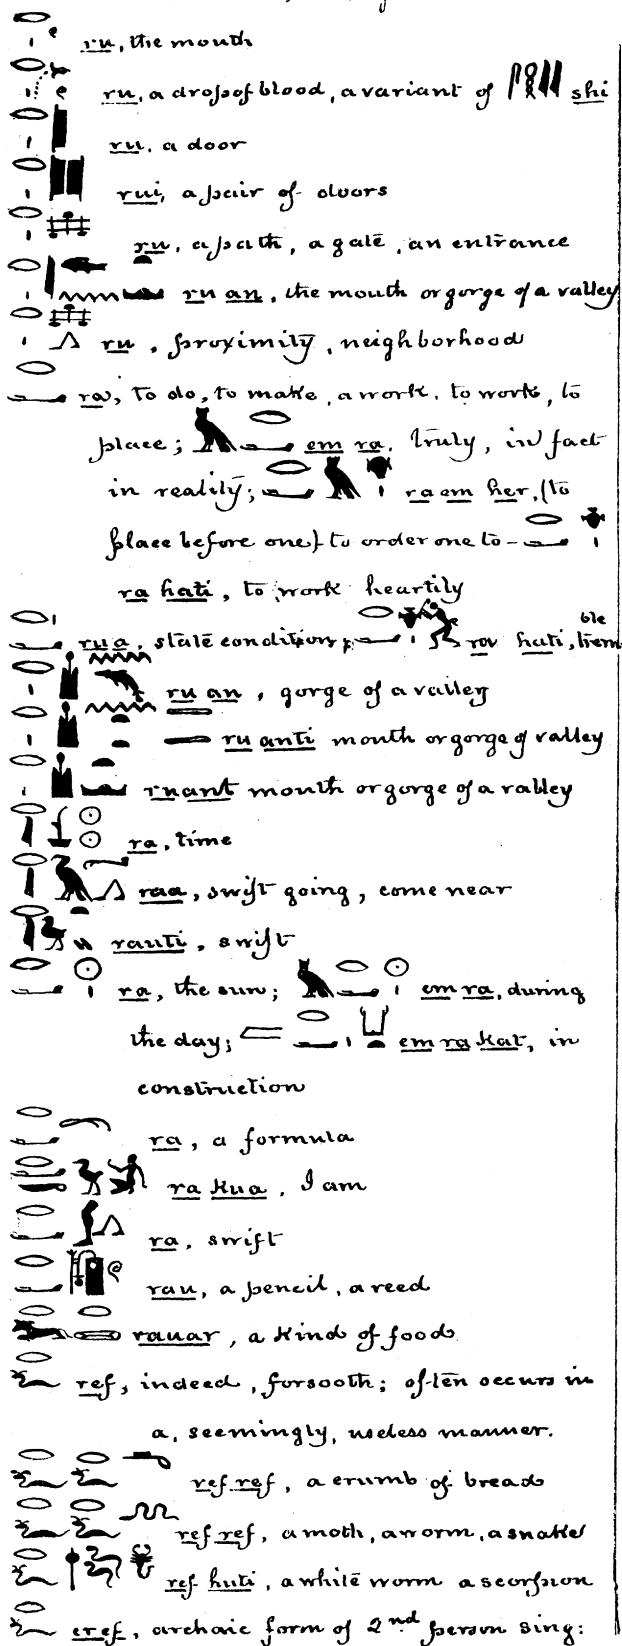 ru, the mouth
ru, a drop of blood, a variant of shi
ru, a door
rui, a pair of doors
ru, a path, a gate, an entrance
ru an, the mouth or gorge of a valley
ru, proximity, neighborhood
ra, to do, to make, a work, to work, to
place; em ra, truly, in fact
in reality; ra em her, (to
place before one) to order one to -
ra hati, to work heartily
rua, state condition; ra hati, tremble
ru an, gorge of a valley
ru anti mouth or gorge of valley
ruant mouth or gorge of a valley
ra, time
raa, swift going, come near
rauti, swift
ra, the sun; em ra, during
the day; em ra kat, in
construction
ra, a formula
ra kua, I am
ra, swift
rau, a pencil, a reed
rauar, a kind of food
ref, indeed, forsooth; often occurs in
a, seemingly, useless manner.
ref ref, a crumb of bread
ref ref, a moth, a worm, a snake
ref huti, a white worm a scorpion
eref, archaic form of 2nd person sing: